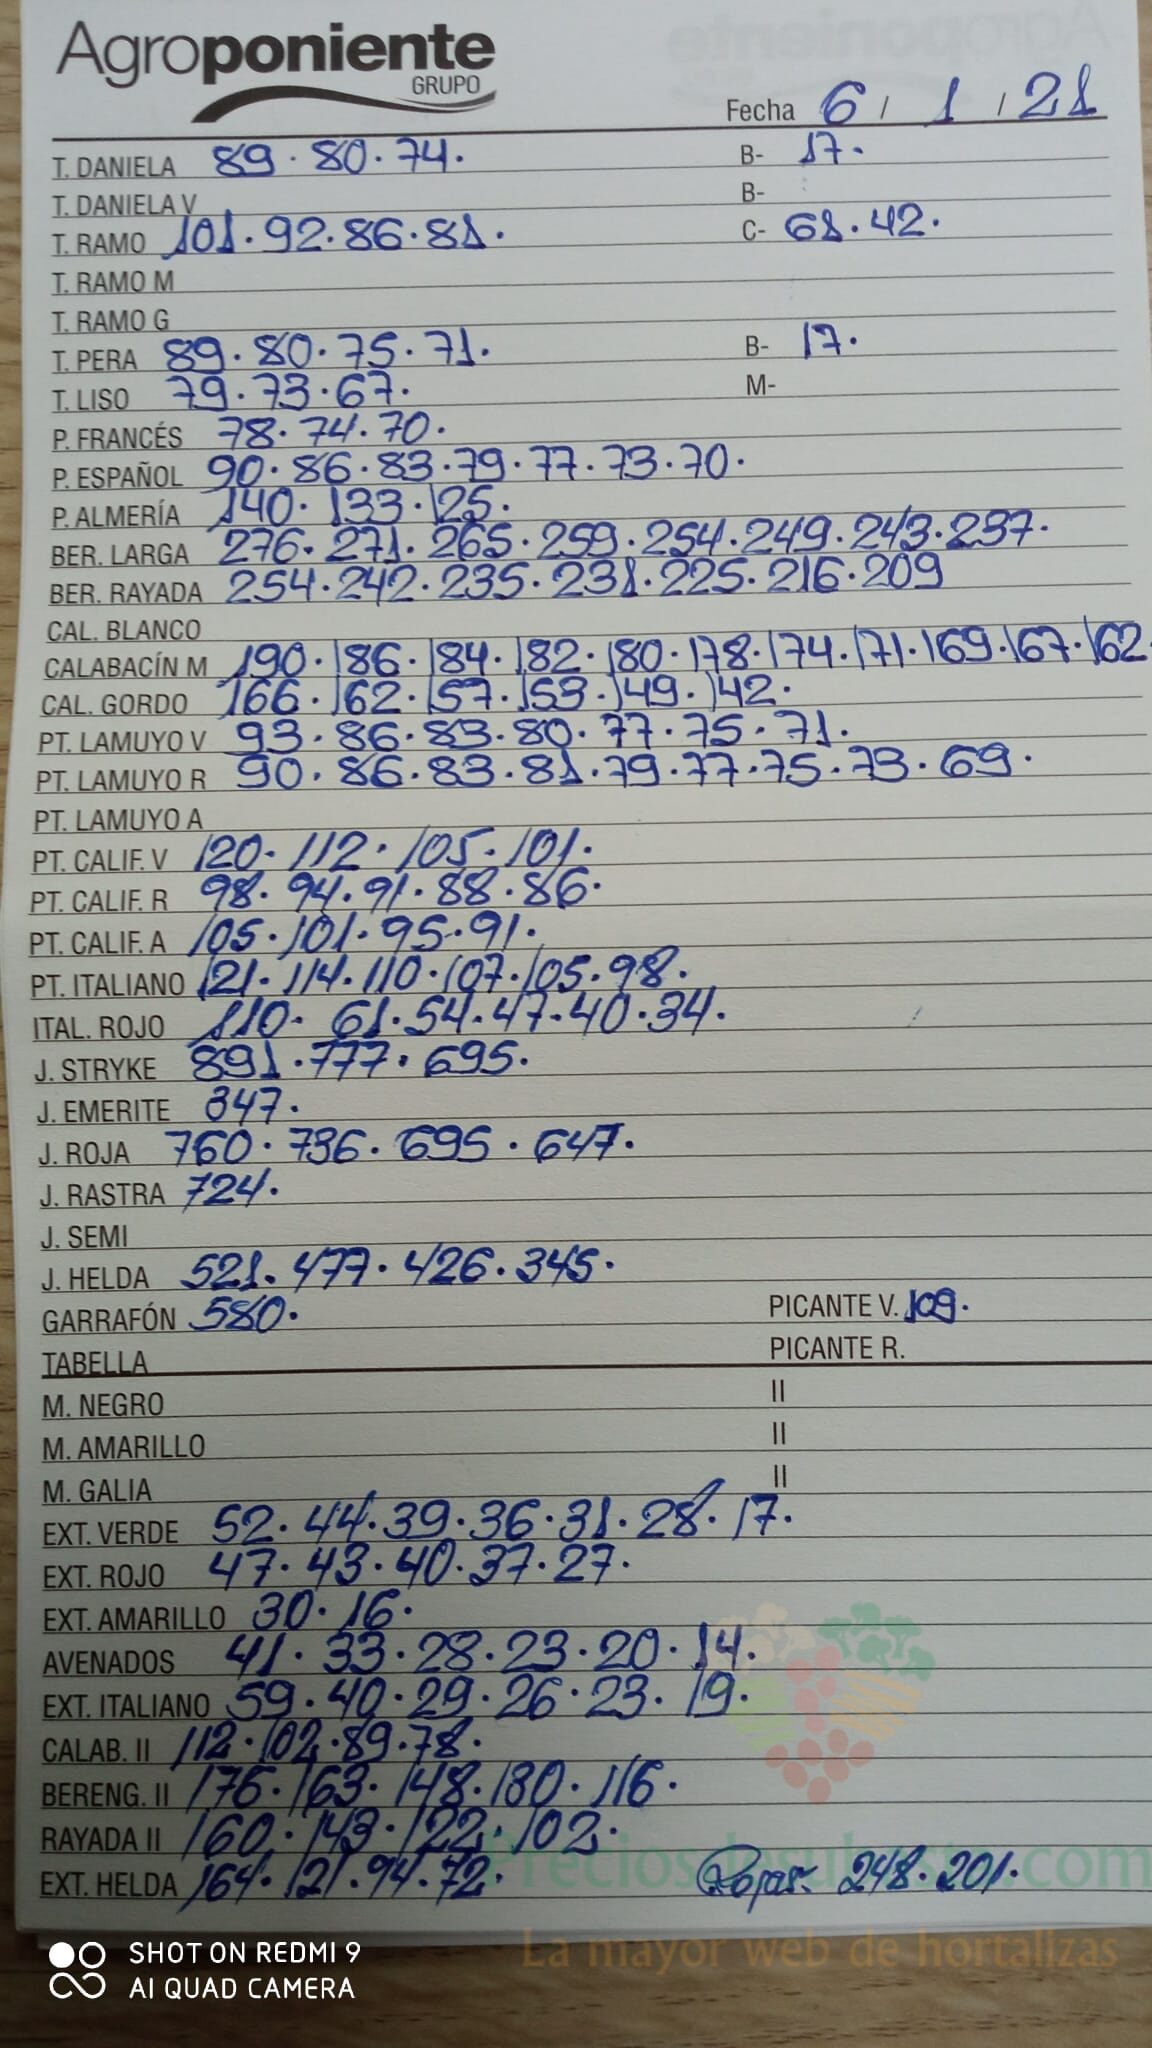 Agroponiente
GRUPO
Fecha 6 / 1 / 21
T. DANIELA 89 · 80 · 74 · B- 17 ·
T. DANIELA V B-
T. RAMO 101 · 92 · 86 · 81 · C- 61 · 42 ·
T. RAMO M
T. RAMO G
T. PERA 89 · 80 · 75 · 71 · B- 17 ·
T. LISO 79 · 73 · 67 · M-
P. FRANCÉS 78 · 74 · 70 ·
P. ESPAÑOL 90 · 86 · 83 · 79 · 77 · 73 · 70 ·
P. ALMERÍA 140 · 133 · 125 ·
BER. LARGA 276 · 271 · 265 · 259 · 254 · 249 · 243 · 237 ·
BER. RAYADA 254 · 242 · 235 · 231 · 225 · 216 · 209
CAL. BLANCO
CALABACÍN M 190 · 186 · 184 · 182 · 180 · 178 · 174 · 171 · 169 · 167 · 162 ·
CAL. GORDO 166 · 162 · 157 · 153 · 149 · 142 ·
PT. LAMUYO V 93 · 86 · 83 · 80 · 77 · 75 · 71 ·
PT. LAMUYO R 90 · 86 · 83 · 81 · 79 · 77 · 75 · 73 · 69 ·
PT. LAMUYO A
PT. CALIF. V 120 · 112 · 105 · 101 ·
PT. CALIF. R 98 · 94 · 91 · 88 · 86 ·
PT. CALIF. A 105 · 101 · 95 · 91 ·
PT. ITALIANO 121 · 114 · 110 · 107 · 105 · 98 ·
ITAL. ROJO 110 · 61 · 54 · 47 · 40 · 34 ·
J. STRYKE 891 · 777 · 695 ·
J. EMERITE 347 ·
J. ROJA 760 · 736 · 695 · 647 ·
J. RASTRA 724 ·
J. SEMI
J. HELDA 521 · 477 · 426 · 345 ·
GARRAFÓN 580 · PICANTE V. 109 ·
TABELLA PICANTE R.
M. NEGRO II
M. AMARILLO II
M. GALIA II
EXT. VERDE 52 · 44 · 39 · 36 · 31 · 28 · 17 ·
EXT. ROJO 47 · 43 · 40 · 37 · 27 ·
EXT. AMARILLO 30 · 16 ·
AVENADOS 41 · 33 · 28 · 23 · 20 · 14 ·
EXT. ITALIANO 59 · 40 · 29 · 26 · 23 · 19 ·
CALAB. II 112 · 102 · 89 · 78 ·
BERENG. II 176 · 163 · 148 · 130 · 116 ·
RAYADA II 160 · 143 · 122 · 102 ·
EXT. HELDA 164 · 121 · 94 · 72 · Rojas: 248 · 201 ·
La mayor web de hortalizas
SHOT ON REDMI 9
AI QUAD CAMERA